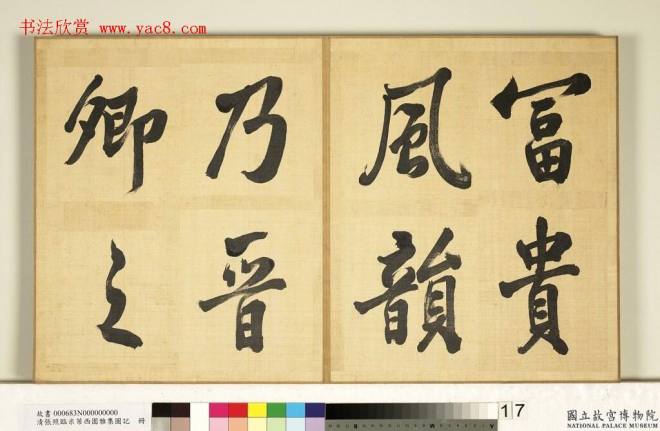 书法欣赏 www.yac8.com
冨貴
風韻
乃晉
卿之
故書 000683N000000000
清張照臨米芾西園雅集圖記 冊
17
國立故宮博物院
NATIONAL PALACE MUSEUM